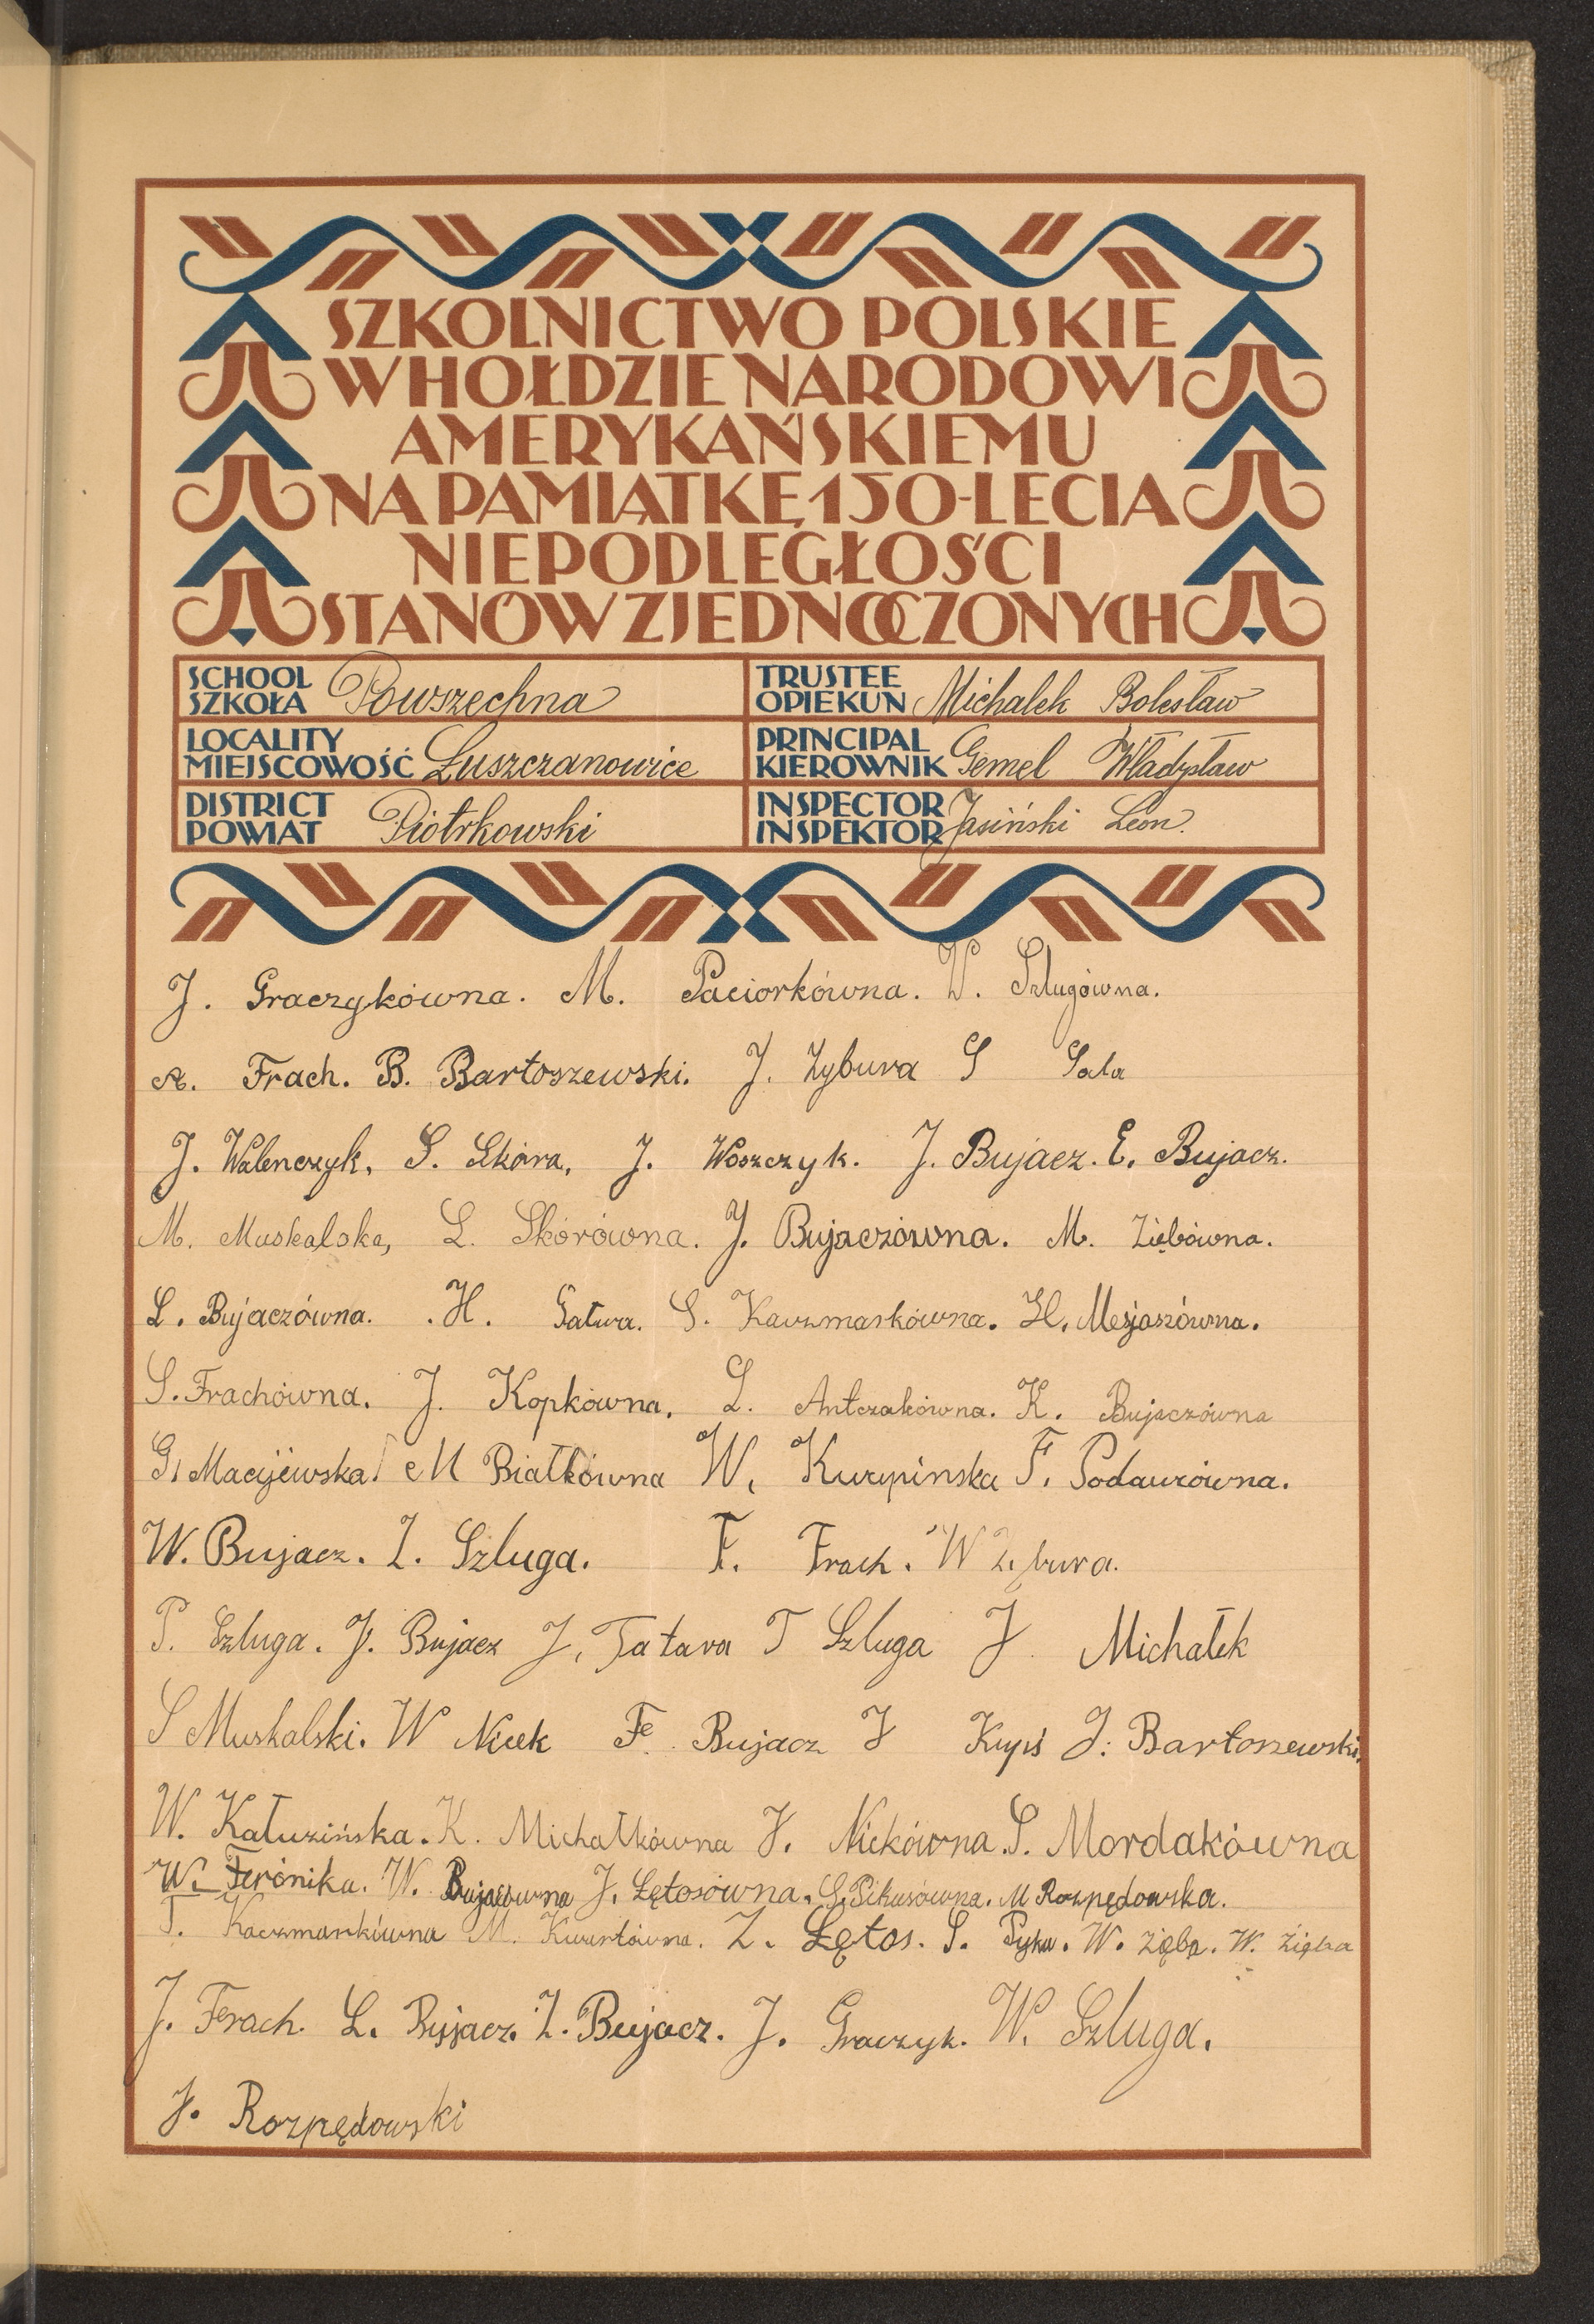 SZKOLNICTWO POLSKIE
W HOŁDZIE NARODOWI
AMERYKAŃSKIEMU
NA PAMIĄTKĘ 150-LECIA
NIEPODLEGŁOŚCI
STANÓW ZJEDNOCZONYCH
SCHOOL
SZKOŁA Powszechna
TRUSTEE
OPIEKUN Michałek Bolesław
LOCALITY
MIEJSCOWOŚĆ Łuszczanowice
PRINCIPAL
KIEROWNIK Gemel Władysław
DISTRICT
POWIAT Piotrkowski
INSPECTOR
INSPEKTOR Jasiński Leon.
J. Graczykówna. M. Paciorkówna. W. Szlugówna.
A. Frach. B. Bartoszewski. J. Zybura S Sala
J. Walenczyk, S. Skóra, J. Woszczyk. J. Bujacz. E. Bujacz.
M. Muskalska, L. Skórówna. J. Bujaczówna. M. Ziębówna.
L. Bujaczówna. H. Gatwa. S. Kaczmarkówna. H. Mesjaszówna.
S. Frachówna. J. Kopkówna. L. Antczakówna. K. Bujaczówna
G. Macijewska M Białkówna W. Kurpinska F.
W. Bujacz. Z. Szluga. F. Frach. W
P. Szluga. J. Bujacz J. Tatara T Szluga J. Michałek
S Muskalski. W Nicek F. Bujacz J Kupś J. Bartoszewski.
W. Kałuzińska. K. Michałkówna J. Nickówna. S. Mordakówna
W. Feronika. W. Bujaczówna J. Łętosówna. S. Pikusówna. M Rozpędowska.
T. Kaczmarkówna M. Kwartówna. Z. Łętos. S. Pyka. W. Zięba. W. Zięba
J. Frach. L. Bujacz. Z. Bujacz. J. Graczyk. W. Szluga.
J. Rozpędowski